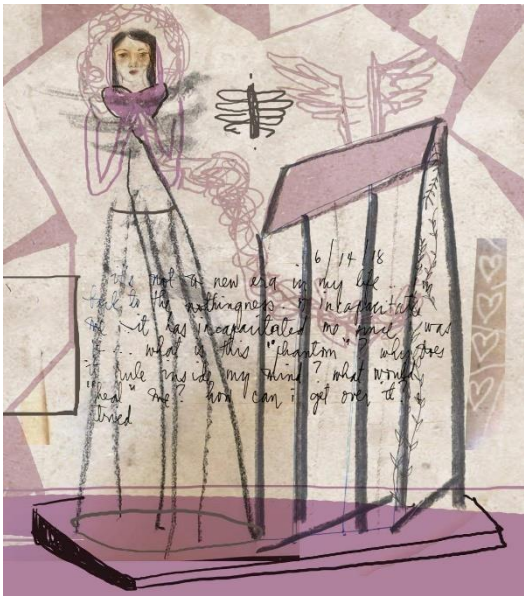 6/14/18
not a new era in my life...
to the nothingness. it incapacitates
it has incapacitated me since i was
.... what is this "phantom"? why does
rule inside my mind? what would
"heal" me? how can i get over it...
tired